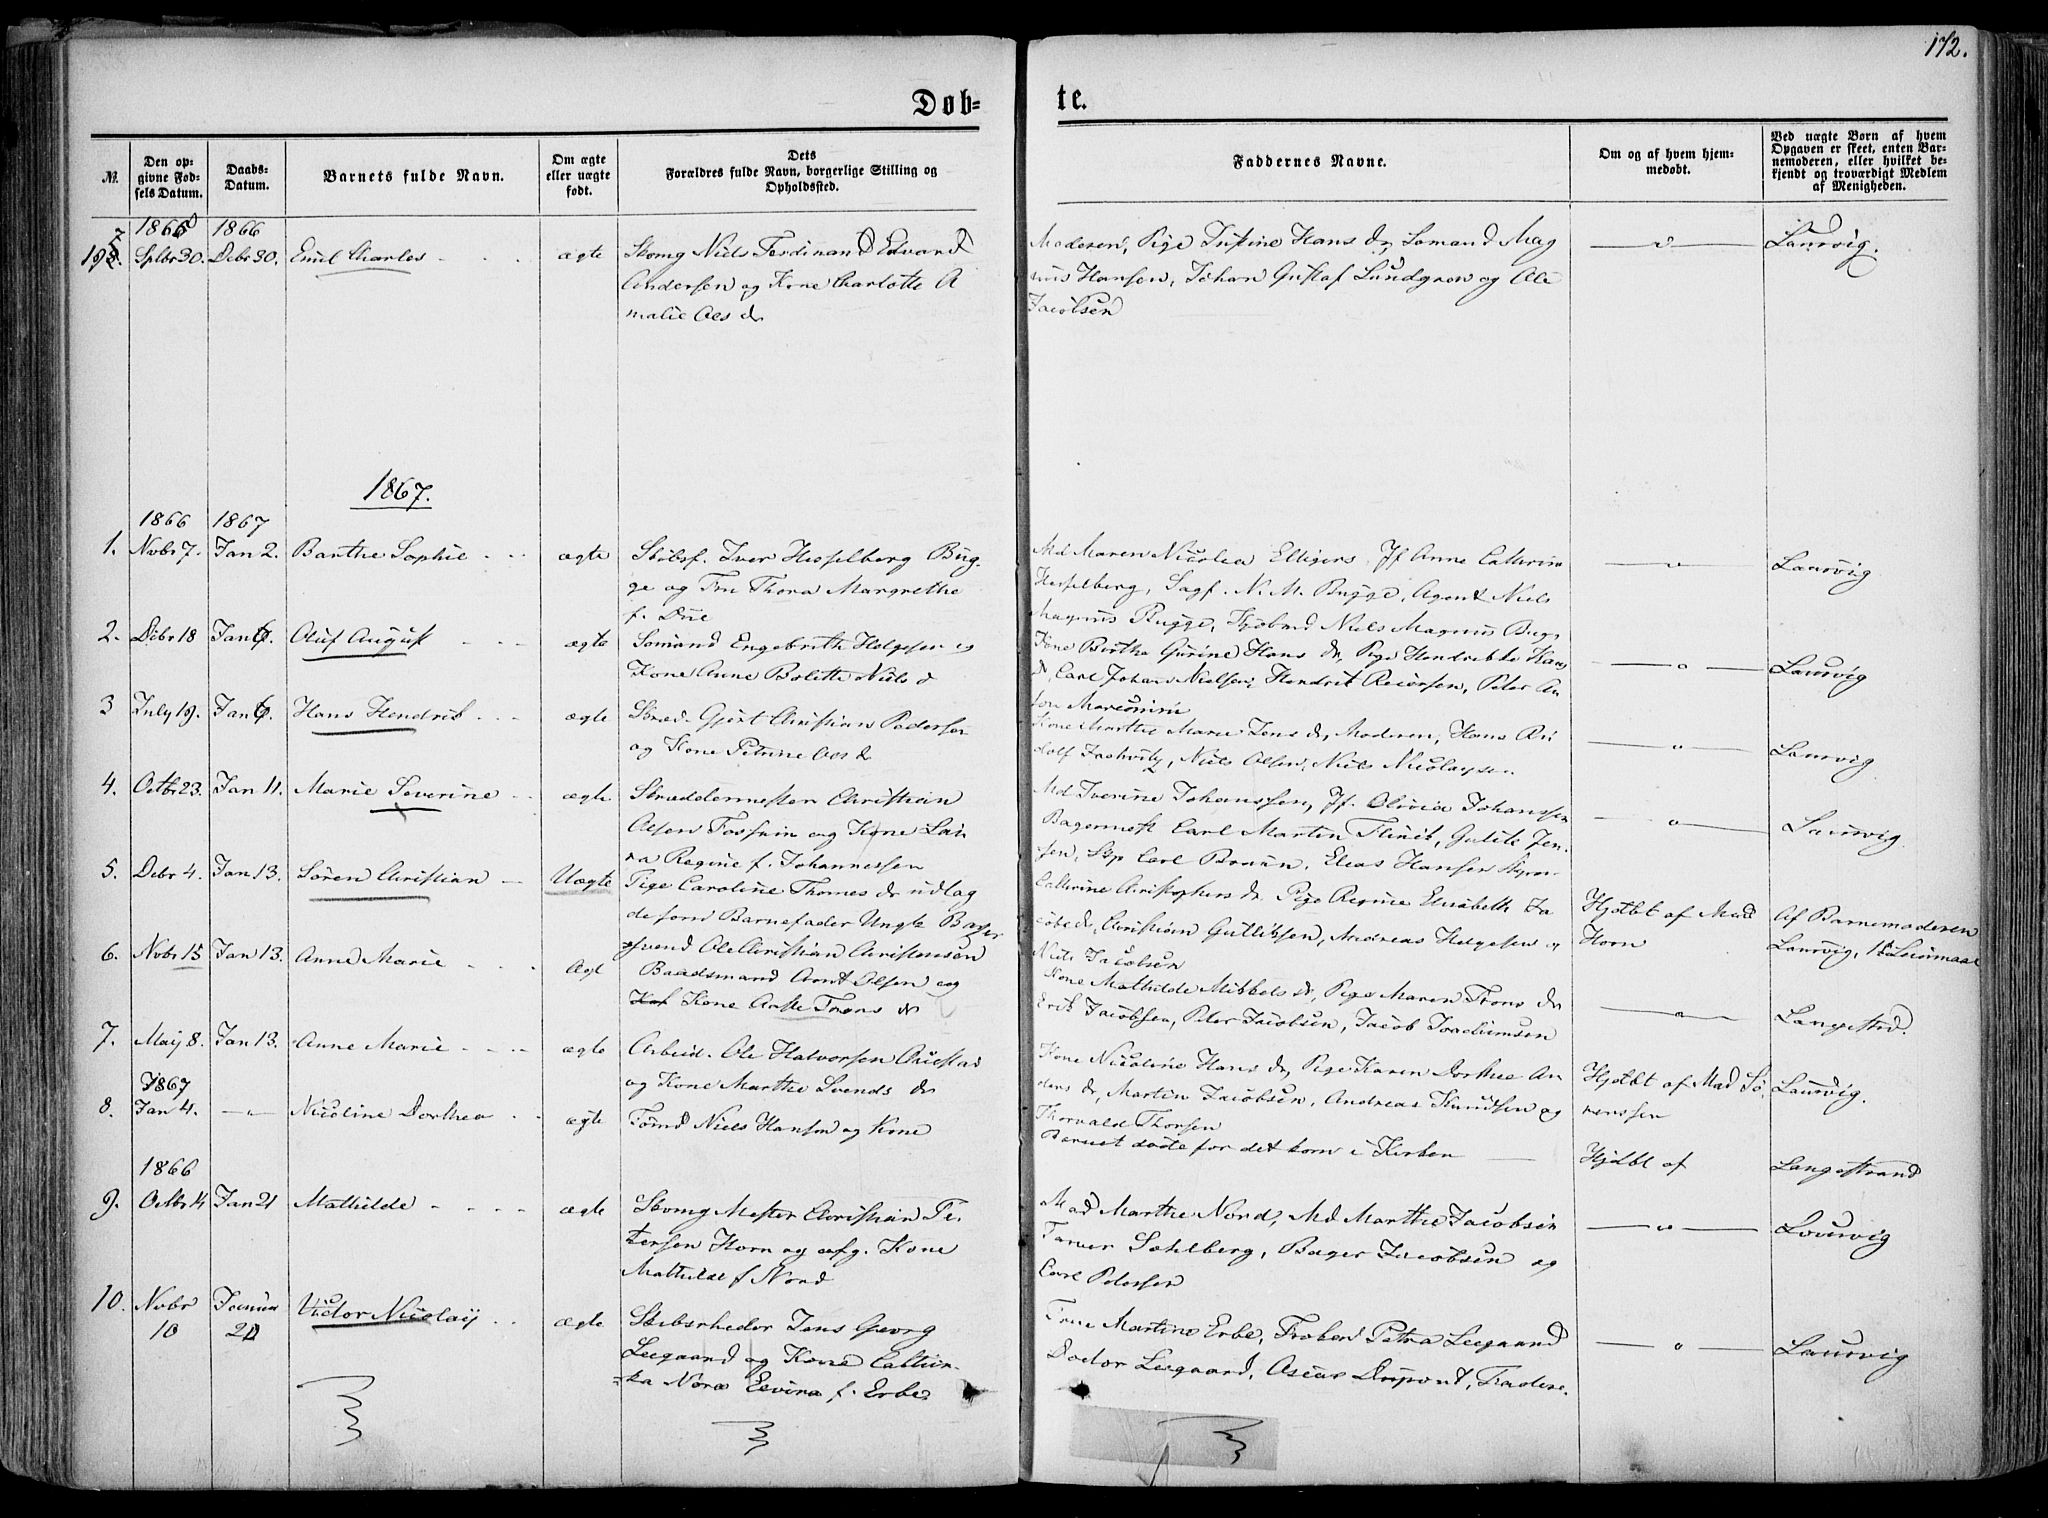 172.
Døb=
te.
№. Den op=givne Fød=sels Datum. Daabs=Datum. Barnets fulde Navn. Om ægte eller uægte født. Dets Forældres fulde Navn, borgerlige Stilling og Opholdssted.
Faddernes Navne. Om og af hvem hjem=medøbt. Ved uægte Børn af hvem Opgaven er skeet, enten Bar=nemoderen, eller hvilket be=kjendt og troværdigt Medlem af Menigheden.
1866 1866
Sptbr 30. Debr 30. Emil Charles ægte Niels Ferdinand Edvard
Andersen og Kone Charlotte A
malie Ols d
Moderen, Pige Hans d, Sømand Mag
nus Hansen, Johan Gustaf Lundgren og Ole
Jacobsen
Laurvig.
1867.
1866 1867
1. Nvbr 7. Jan 2. Barthe Sophie ægte Skibsf. Iver Hesselberg Bug-
ge og Fru Thora Margrethe
f. Due
Md Maren Nicolea Elligers Jf Anne Cathrine
Hesselberg, Sagf. N. M. Bugge, Agent Niels
Magnus Bugge, Niels Magnus Bugge
Laurvig
2. Debr 18 Jan 6. Oluf August ægte Sømand Engebreth Helgesen og
Kone Anne Bolette Niels d
Kone Birthe Gurine Hans d, Pige Hendrikke Hans
d, Carl Johan Nielsen, Hendrik Reiersen, Peter An
ton
Laurvig
3 July 19. Jan 6. Hans Hendrik ægte Gjert Christian Pedersen
og Kone Petrine Ols d
Kone Marthe Marie Jens d, Moderen, Hans
dolf, Niels Olsen, Niels Nicolaysen
Laurvig
4. Octbr 23. Jan 11. Marie Severine ægte Skræddermester Christian
Olsen og Kone Lau
ra Regine f. Johannessen
Md Iverine Johanssen, Jf. Olivia Johanssen
Bagermest Carl Martin, Jen-
sen, Skp Carl Bruun, Elias Hansen
Laurvig.
5. Debr 4. Jan 13. Søren Christian Uægte Pige Caroline Thomes d udlag
de som Barnefader Ungk Bager
svend Ole Christian Christensen
Cathrine Christophers d. Pige Regine Elisabeth Ja
cobs d, Christian Gulliksen, Andreas Helgesen og
Niels Jacobsen
Hjdøbt af Mad
Horn
Af Barnemoderen
Laurvig, 1ste Leiermaal
6. Nvbr 15 Jan 13. Anne Marie Ægt Baadsmand Arnt Olsen og
Kone Aaste Frans d
Kone Mathilde Mikkels d, Pige Maren Frans d
Erik Jacobsen, Peter Jacobsen, Jacob Joachimsen
Langestrd.
7. May 8. Jan 13. Anne Marie ægte Arbeid. Ole Halvorsen
og Kone Marthe Svends d
Kone Nicoline Hans d, Pige Karen Dorthee An
ders d, Martin Jacobsen, Andreas Knudsen og
Thorvald Thorsen
Hjdøbt af Mad Sø
renssen
Laurvig.
1867
8. Jan 4. Nicoline Dorthea ægte Tømd Niels Hansen og Kone
Barnet døde før det kom i Kirken
Hjdøbt af
Langestrand
1866
9. Octbr 14 Jan 21 Mathilde ægte Mester Christian Pe
tersen Horn og afg. Kone
Mathilde f Nord
Mad Marthe Nord, Md Marthe Jacobsen
Farver Sohlberg, Bager Jacobsen og
Carl Petersen
Laurvig
10. Nvbr Januar Victor Nicolaij ægte Skibsrheder Jens Georg
10 20 Leegaard og Kone Cathin-
ka Nora Elvina f. Erbe
Frue Martine Erbe, Frøken Petra Leegaard
Doctor Leegaard, Oscar Dupont, Faderen.
Laurvig